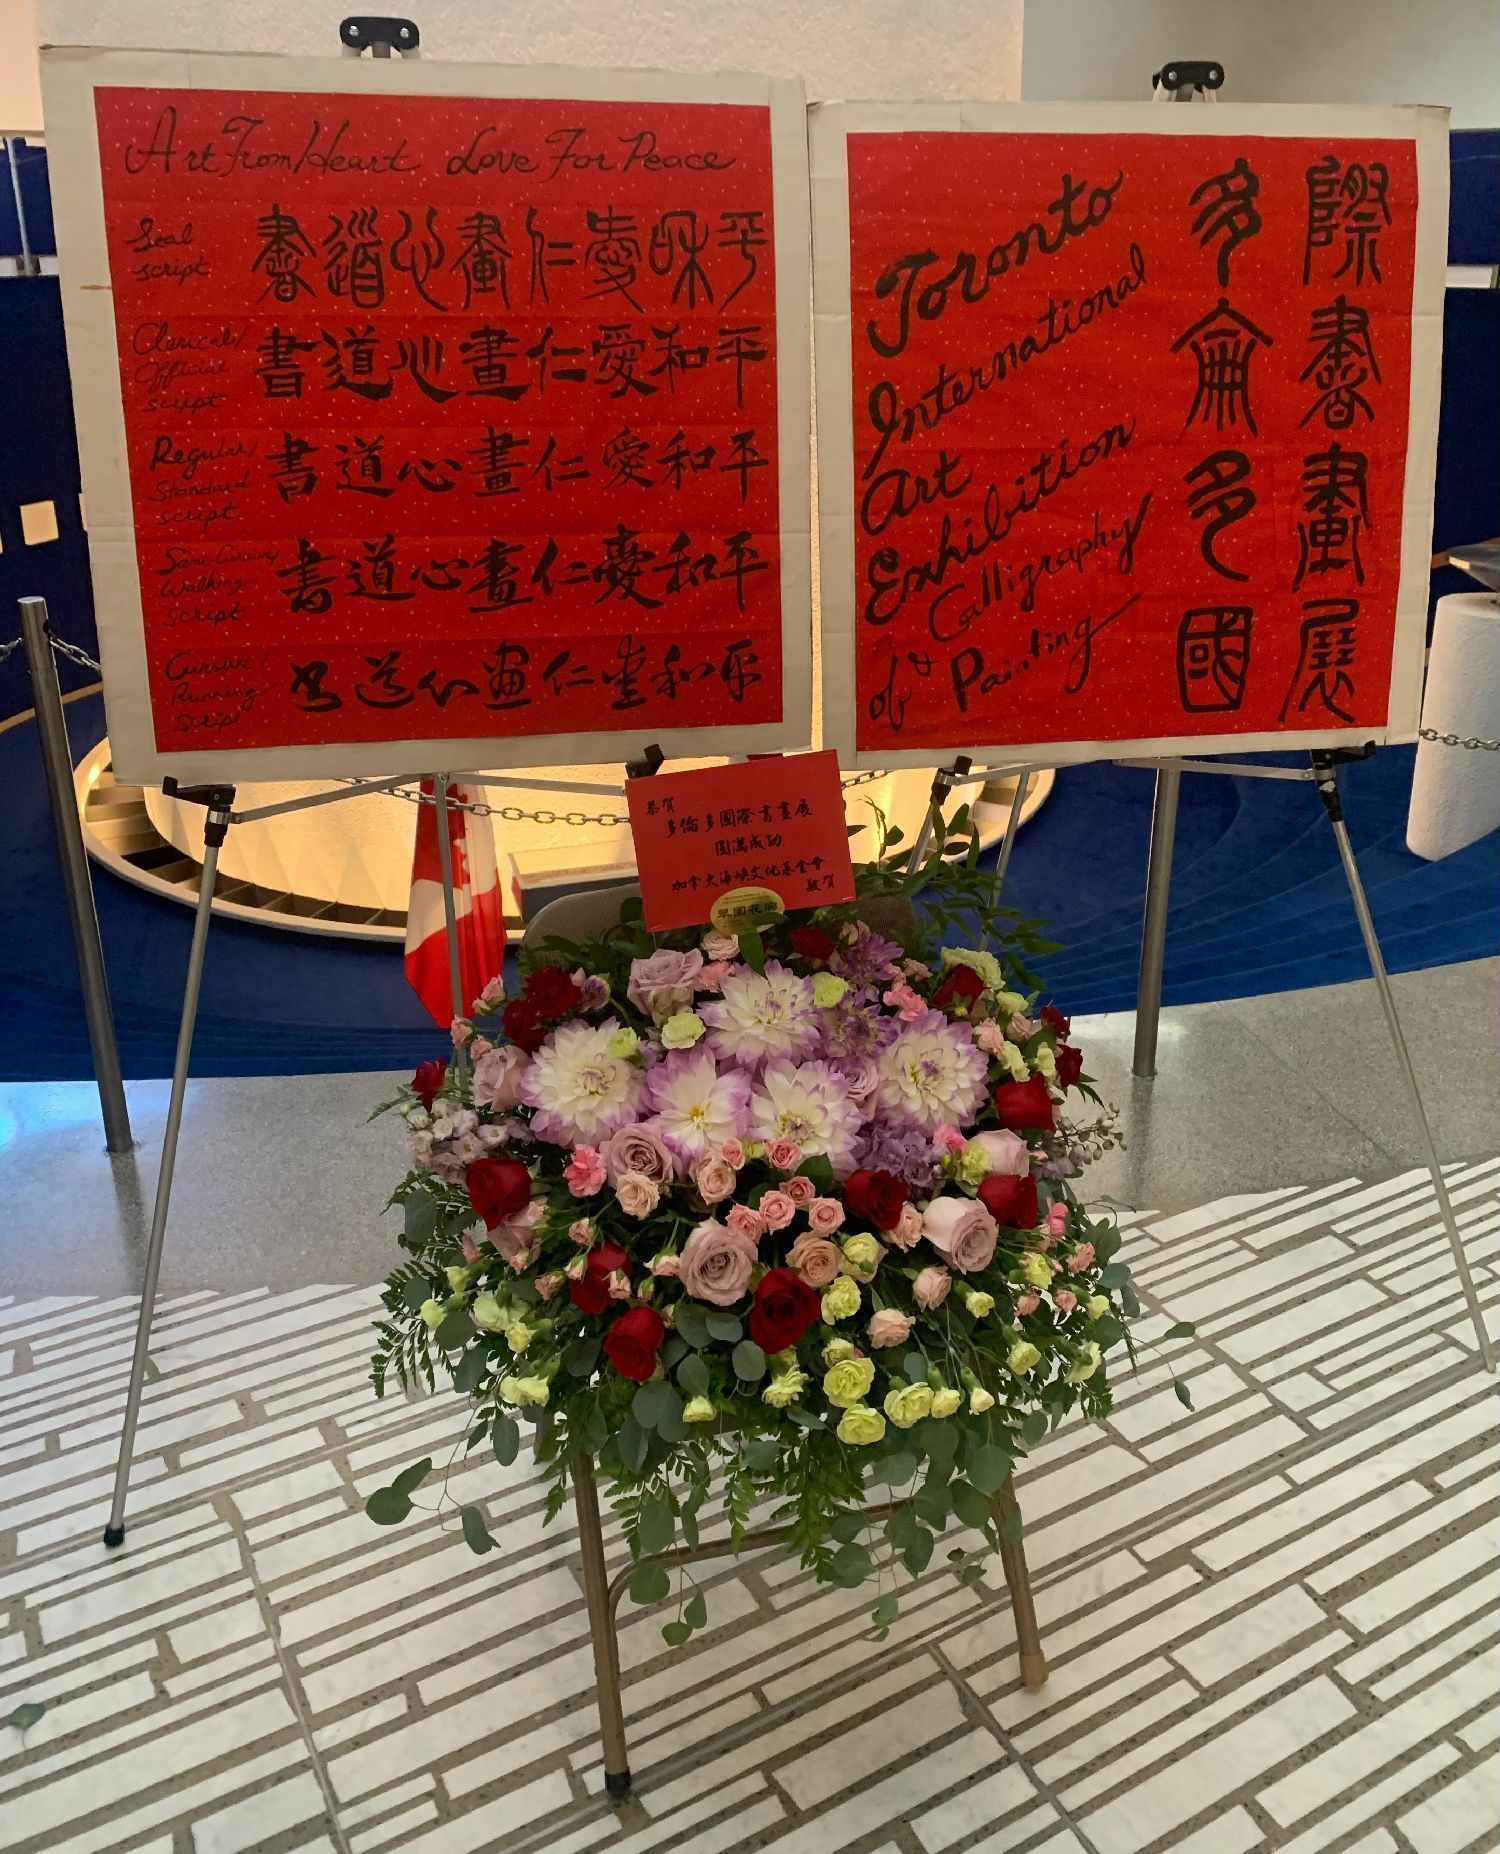 Art From Heart Love For Peace
Seal script 書道心畫仁愛和平
Clerical/ Official script 書道心畫仁愛和平
Regular/ Standard script 書道心畫仁愛和平
Semi Cursive/ Walking script 書道心畫仁愛和平
Cursive/ Running script 书道心画仁愛和平
Toronto
International
Art
Exhibition
of Calligraphy
& Painting
多侖多國
際書畫展
恭賀
多倫多國際書畫展
圓滿成功
加拿大海峽文化基金會
敬賀
翠園花廊